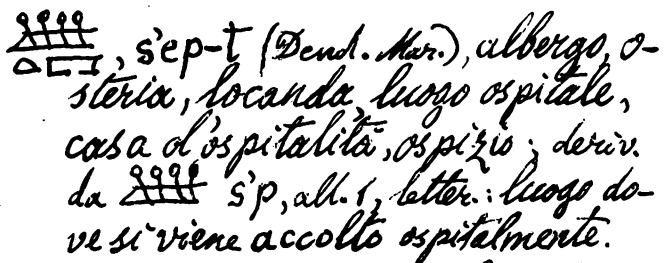 , s'ep-t (Dend. Mar.), albergo, o-
steria, locanda, luogo ospitale,
casa d'ospitalità, ospizio; deriv.
da s'p, all. 1, letter.: luogo do-
ve si viene accolto ospitalmente.